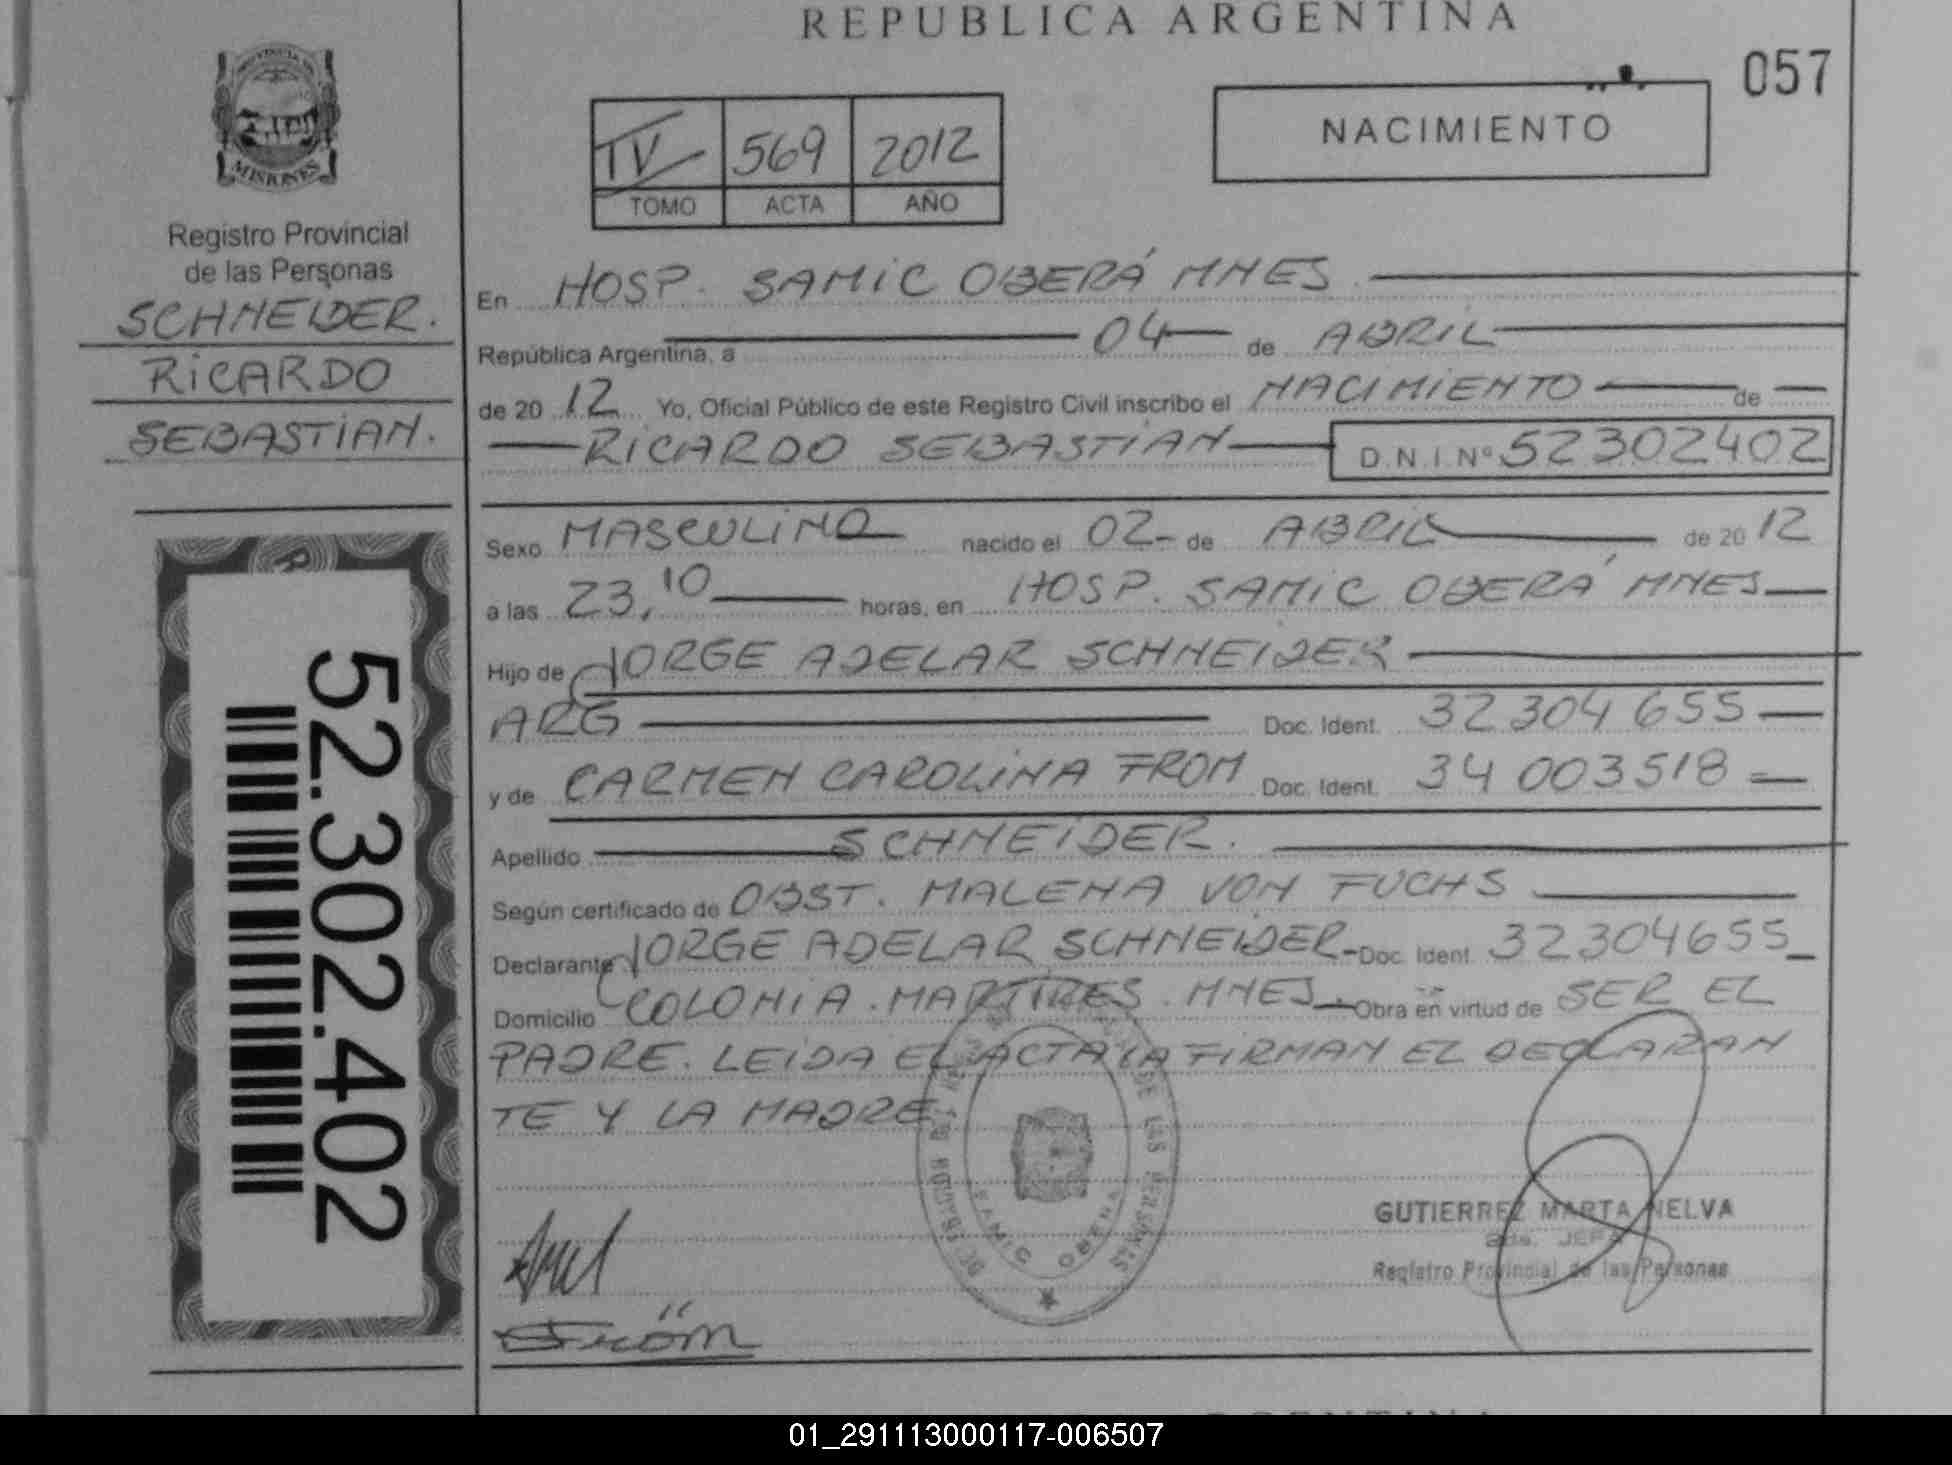 REPUBLICA ARGENTINA
057
PROVINCIA DE
MISIONES
Registro Provincial
de las Personas
SCHNEIDER.
RICARDO
SEBASTIAN.
52.302.402
TV 569 2012
TOMO ACTA AÑO
NACIMIENTO
En HOSP. SAMIC OBERÁ MNES
República Argentina, a 04 de ABRIL
de 20 12 Yo, Oficial Público de este Registro Civil inscribo el NACIMIENTO de
RICARDO SEBASTIAN D.N.I.Nº 52302402
Sexo MASCULINO nacido el 02 de ABRIL de 20 12
a las 23,10 horas, en HOSP. SAMIC OBERÁ MNES
Hijo de JORGE ADELAR SCHNEIDER
ARG Doc. Ident. 32304655
y de CARMEN CAROLINA FROM Doc. Ident. 34003518
Apellido SCHNEIDER.
Según certificado de OBST. MALENA VON FUCHS
Declarante JORGE ADELAR SCHNEIDER Doc. Ident. 32304655
Domicilio COLONIA. MARTIRES. MNES Obra en virtud de SER EL
PADRE. LEIDA EL ACTA LA FIRMAN EL DECLARAN
TE Y LA MADRE
DE LAS PERSONAS
SAMIC OBERA
GUTIERREZ MARTA NELVA
JEFA
Registro Provincial de las Personas
Fröm
01_291113000117-006507